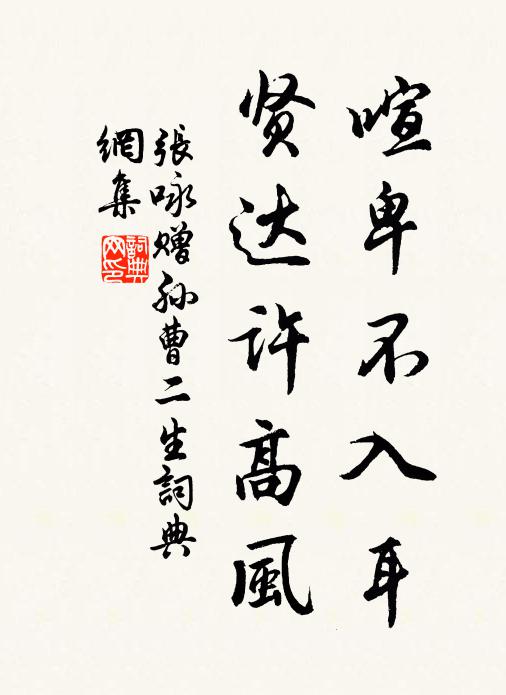 喧卑不入耳
贤达许高風
張咏赠孙曹二生詞典
網集
詞典
网印